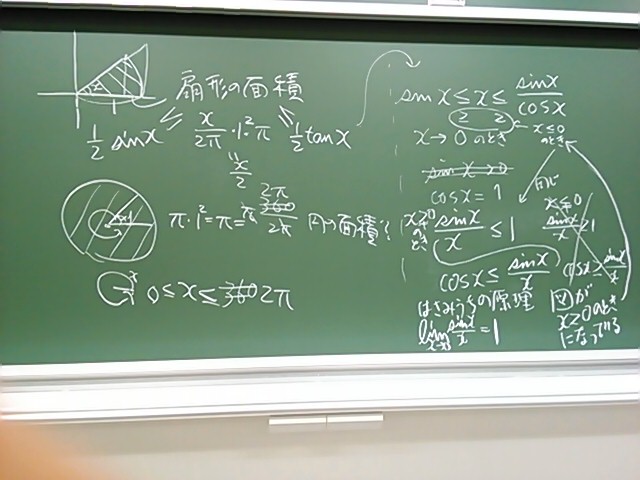 扇形の面積
1/2 sinx ≦ x/2π ・1・²π ≦ 1/2 tanx
x/2
π・1²=π= 2π 360/2π 円の面積
x
0≦x≦ 360 2π
sinx≦x≦ sinx/cosx
x→0のとき x≦0のとき
sin x→0
cosx=1
同じ
x≧0のとき sinx/x ≦1
x≦0 sinx/x ≧1
cosx≦ sinx/x
cosx≧ sinx/x
はさみうちの原理
lim x→0 sinx/x =1
図が
x≧0のとき
になってる